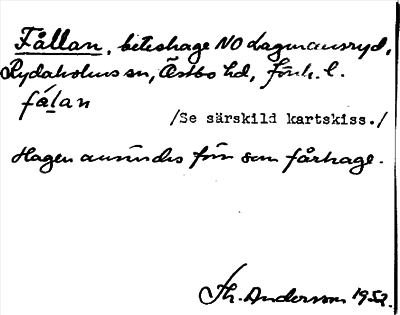 Fållan, beteshage NO Lagmansryd,
Rydaholms sn, Östbo hd, Jönk. l.
få̱lan
/Se särskild kartskiss./
Hagen användes förr som fårhage.
Th. Andersson 1952.